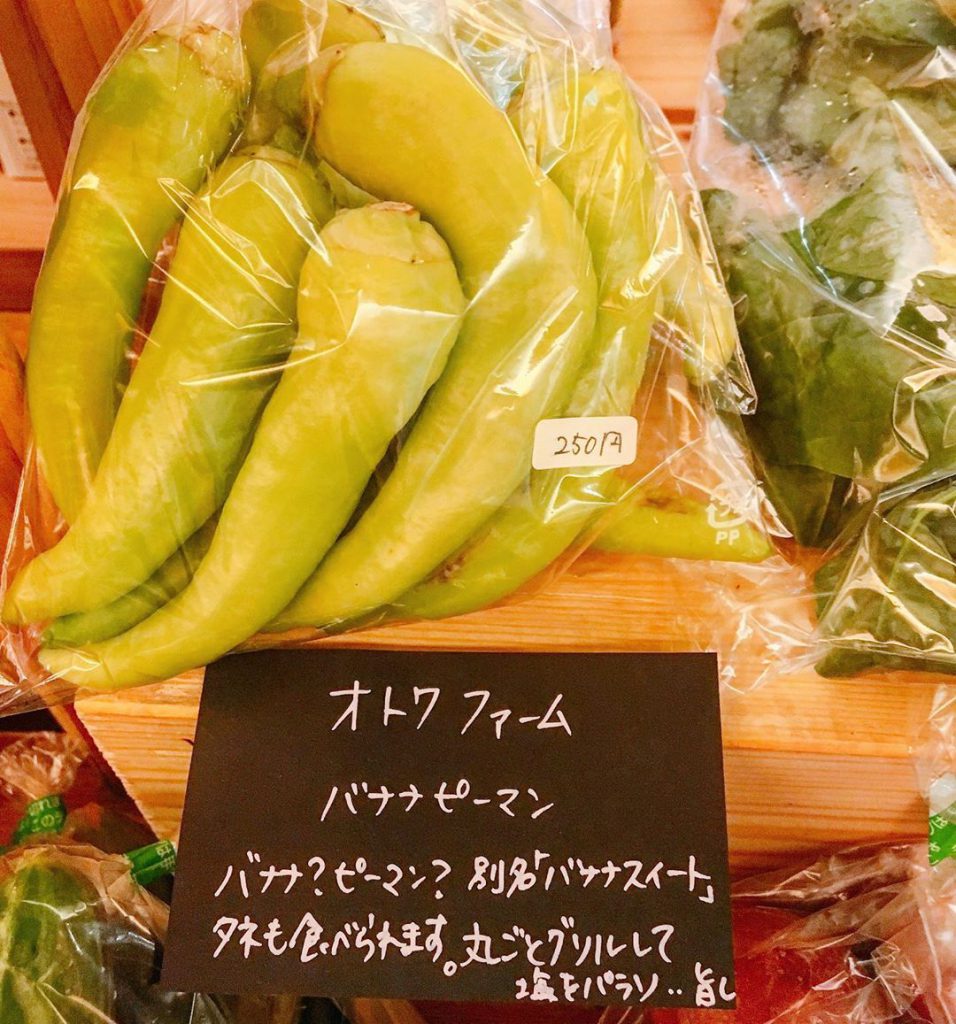 250円
PP
オトワファーム
バナナピーマン
バナナ?ピーマン? 別名「バナナスイート」
タネも食べられます。丸ごとグリルして
塩をパラリ‥旨し